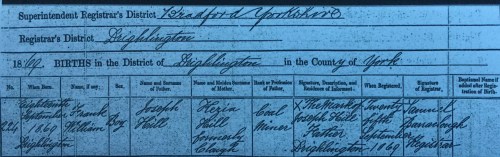 Superintendent Registrar's District Bradford Yorkshire
Registrar's District Drighlington
1869. BIRTHS in the District of Drighlington in the County of York
No. When Born. Name, if any. Sex. Name and Surname of Father. Name and Maiden Surname of Mother. Rank or Profession of Father. Signature, Description, and Residence of Informant. When Registered. Signature of Registrar. Baptismal Name if added after Registration of Birth.
Eighteenth Frank Joseph Kezia Coal X The Mark of Twenty Samuel
September William Boy Hill Hill Miner Joseph Hill fifth Barraclough
224 1869 formerly Father September Registrar
Drighlington Clough Drighlington 1869